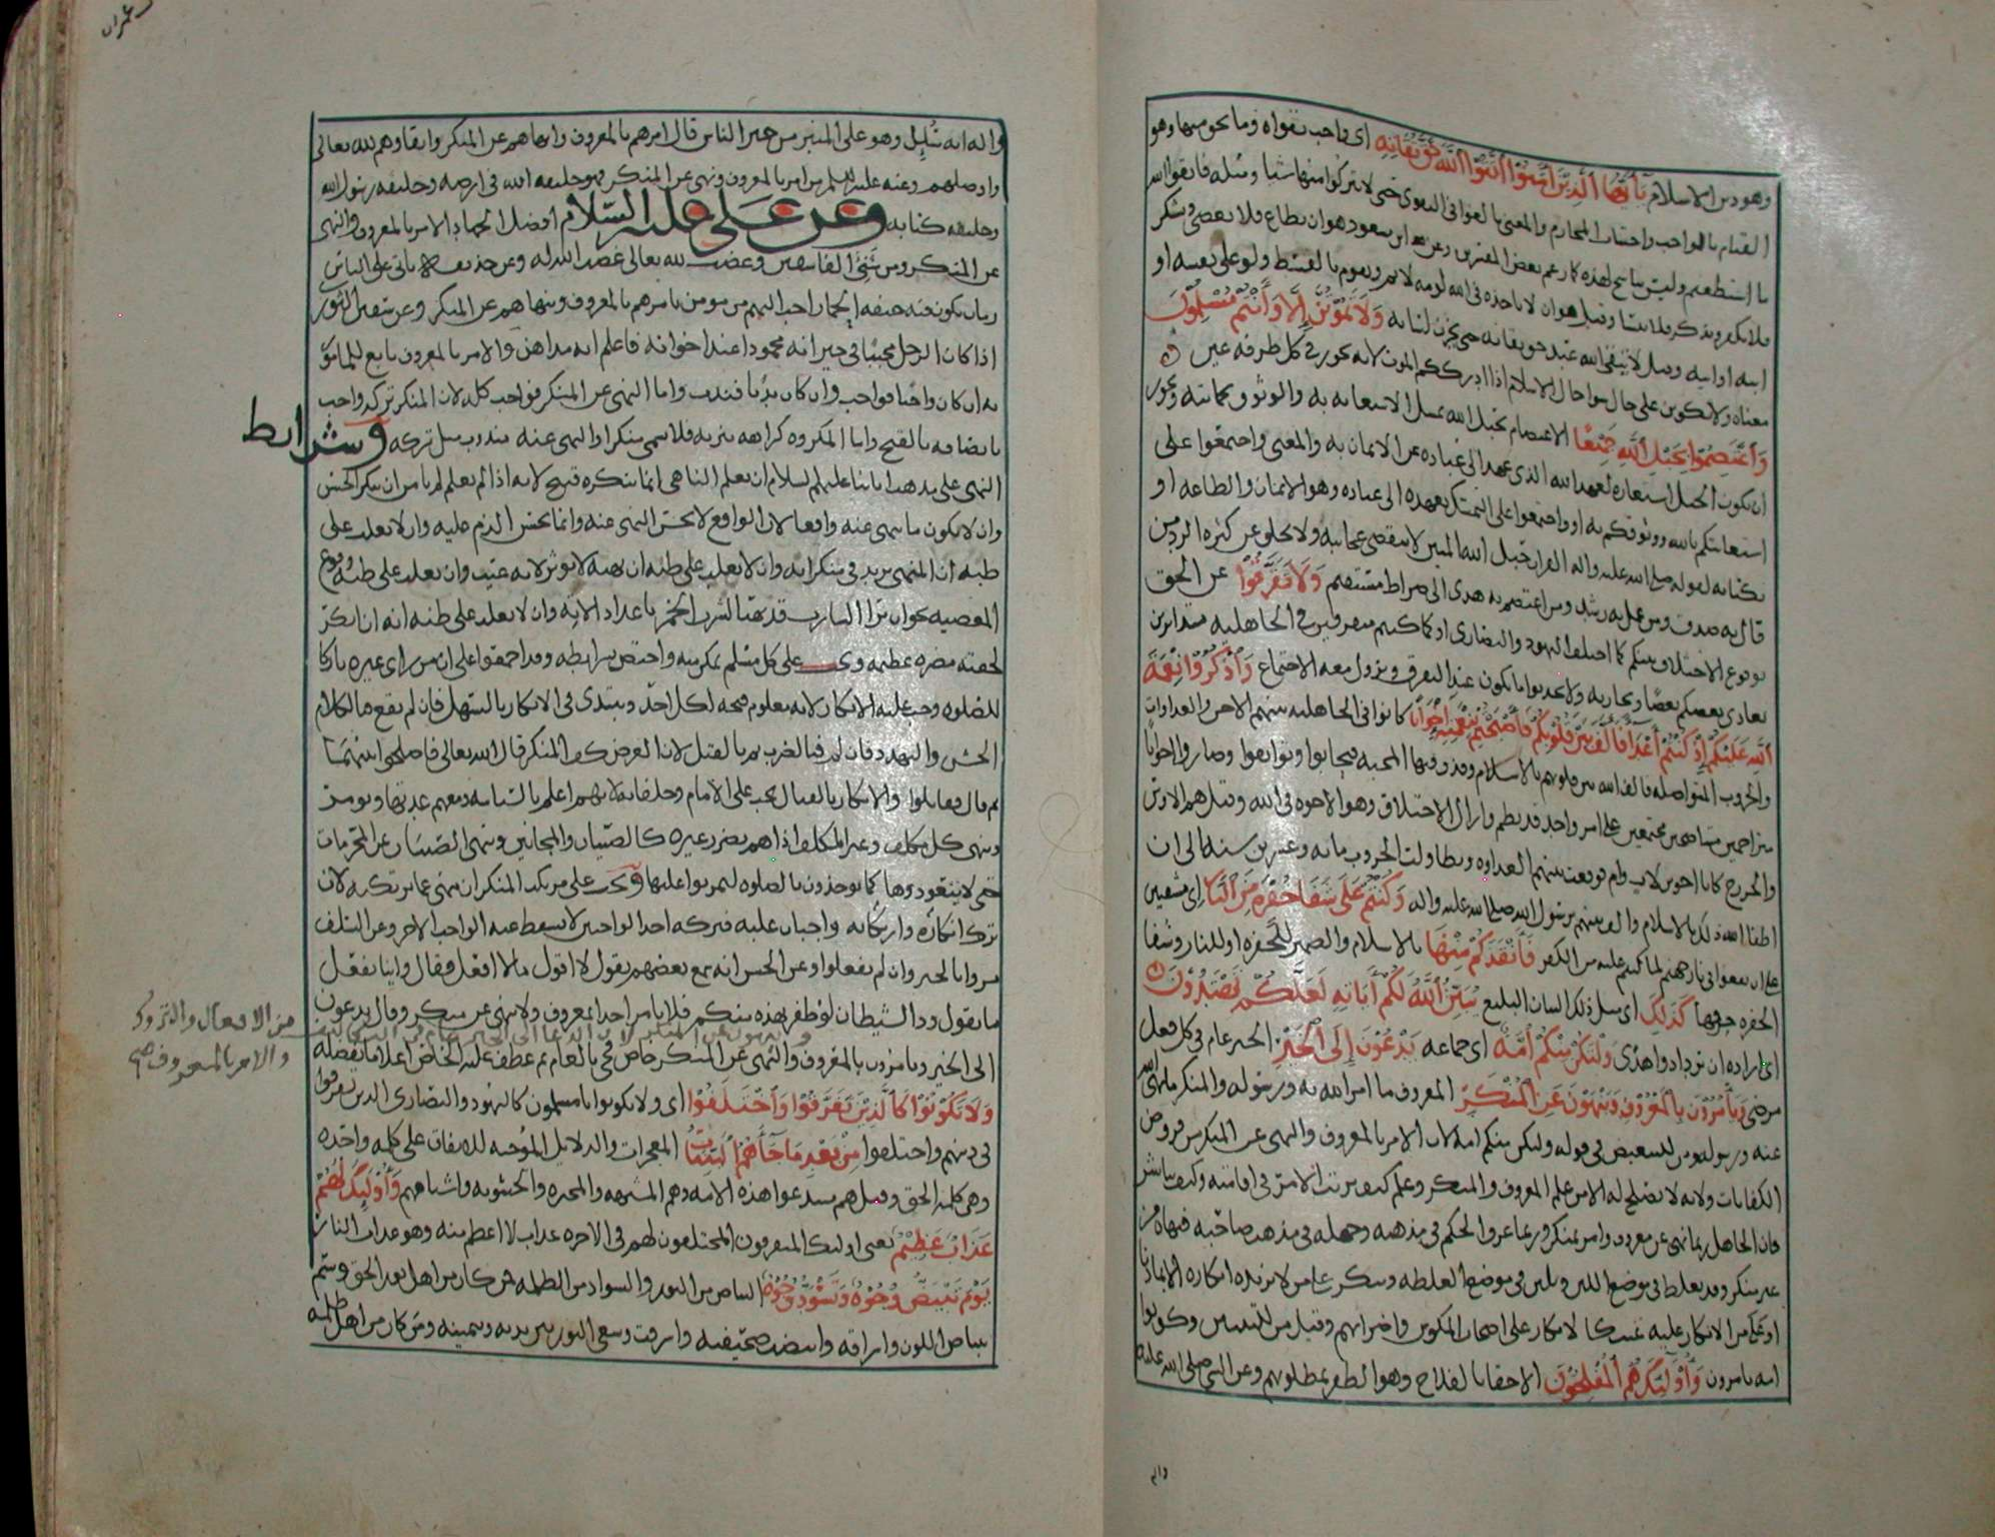 وهو دين الاسلام يٰأيّها الّذين آمنوا اتّقوا اللّه حقّ تقاته اى واجب تقواه وما يحق منها وهو
القيام بالواجب واجتناب المحارم والمعنى بالغوا فى التقوى حتى لا تتركوا منها شيا ومثله فاتقوا الله
ما استطعتم وليس بناسخ لهذه كما زعم بعض المفسرين وعن ابن مسعود هو ان يطاع فلا يعصى ويشكر
فلا يكفر ويذكر فلا ينسا وقيل هو ان لا ياخذه فى الله لومه لايم ويقوم بالقسط ولو على نفسه او
ابنه او ابيه وقيل لا يتقى الله عبد حق تقاته حتى يخزن لسانه ولا تموتنّ إلّا وأنتم مسلمون
معناه ولا تكونن على حال سوا حال الاسلام اذا ادرككم الموت لانه يجوز فى كل طرفه عين
واعتصموا بحبل اللّه جميعًا الاعتصام بحبل الله تمثيل الاستعانه به والوثوق بحمايته ويجوز
ان يكون الحبل استعاره لعهد الله الذى عهد الى عباده من الايمان به والمعنى واجتمعوا على
استعانتكم بالله ووثوقكم به او واجتمعوا على التمسك بعهده الى عباده وهو الايمان والطاعه او
بكتابه لقوله صلى الله عليه واله القران حبل الله المتين لا تنقضى عجائبه ولا يخلق عن كثره الرد من
قال به صدق ومن عمل به رشد ومن اعتصم به هدى الى صراط مستقيم ولا تفرّقوا عن الحق
بوقوع الاختلاف بينكم كما اختلف اليهود والنصارى او كما كنتم متفرقين فى الجاهليه متدابرين
يعادى بعضكم بعضا ويحاربه ولا تحدثوا ما يكون عنه التفرق ويزول معه الاجتماع واذكروا نعمة
اللّه عليكم إذ كنتم أعداء فألّف بين قلوبكم فأصبحتم بنعمته إخوانًا كانوا فى الجاهليه بينهم الاحن والعداوات
والحروب المتواصله فالف الله بين قلوبهم بالاسلام وقذف فيها المحبه فتحابوا وتوافقوا وصاروا اخوانا
متراحمين متناصحين مجتمعين على امر واحد قد نظم وازال الاختلاف وهو الاخوه فى الله وقيل هم الاوس
والخزرج كانا اخوين لاب وام فوقعت بينهم العداوه وتطاولت الحروب مائه وعشرين سنه الى ان
اطفا الله ذلك بالاسلام والف بينهم برسول الله صلى الله عليه واله وكنتم على شفا حفرة من النّار اى مشفين
على ان تقعوا فى نار جهنم لما كنتم عليه من الكفر فأنقذكم منها بالاسلام والضمير للحفره او للنار وشفا
الحفره حرفها كذلك اى مثل ذلك البيان البليغ يبيّن اللّه لكم آياته لعلّكم تهتدون
اى اراده ان تزدادوا هدى ولتكن منكم أمّة اى جماعه يدعون إلى الخير الخير عام فى كل فعل
مرضى ويأمرون بالمعروف وينهون عن المنكر المعروف ما امر الله به ورسوله والمنكر ما نهى الله
عنه ورسوله ومن للتبعيض فى قوله ولتكن منكم امه لان الامر بالمعروف والنهى عن المنكر من فروض
الكفايات ولانه لا يصلح له الا من علم المعروف والمنكر وعلم كيف يرتب الامر فى اقامته وكيف يباشر
فان الجاهل ربما نهى عن معروف وامر بمنكر وربما عرف الحكم فى مذهبه وجهله فى مذهب صاحبه فنهاه عن
غير منكر وقد يغلظ فى موضع اللين ويلين فى موضع الغلظه وينكر على من لا يزيده انكاره الا تماديا
او على من الانكار عليه عبث كالانكار على اصحاب المكوس واضرابهم وقيل من للتبيين وكونوا
امه تامرون وأولئك هم المفلحون الاحقا بالفلاح وهو الظفر بمطلوبهم وعن النبى صلى الله عليه
واله
عمران
واله انه سُئِل وهو على المنبر من خير الناس قال امرهم بالمعروف وانهاهم عن المنكر واتقاهم لله تعالى
واوصلهم وعنه عليه السلم من امر بالمعروف ونهى عن المنكر فهو خليفه الله فى ارضه وخليفه رسول الله
وخليفه كتابه وعن على عليه السلام افضل الجهاد الامر بالمعروف والنهى
عن المنكر ومن شنئ الفاسقين وغضب لله تعالى غضب الله له وعن حذيفه ياتى على الناس
زمان تكون فيه جيفه الحمار احب اليهم من مومن يامرهم بالمعروف وينهاهم عن المنكر وعن سفين الثورى
اذا كان الرجل محببا فى جيرانه محمودا عند اخوانه فاعلم انه مداهن والامر بالمعروف تابع للمامور
به ان كان واجبا فواجب وان كان ندبا فندب واما النهى عن المنكر فواجب كله لان المنكر تركه واجب
لاتصافه بالقبح واما المكروه كراهه تنزيه فلا يسمى منكرا والنهى عنه مندوب مثل تركه وشرايط
النهى على مذهب ابائنا عليهم السلام ان يعلم الناهى ان ما ينكره قبيح لانه اذا لم يعلم لم يامن ان ينكر الحسن
وان لا يكون ما ينهى عنه واقعا لان الواقع لا يحسن النهى عنه وانما يحسن الذم عليه وان لا يغلب على
ظنه ان المنهى يزيد فى منكراته وان لا يغلب على ظنه ان نهيه لا يوثر لانه عبث وان يغلب على ظنه وقوع
المعصيه نحو ان يرا الشارب قد تهيا لشرب الخمر باعداد الاته وان لا يغلب على ظنه انه ان انكر
لحقته مضره عظيمه وى على كل مسلم تمكن منه واختص بشرايطه وقد اجمعوا على ان من راى غيره تاركا
للصلوه وجب عليه الانكار لانه معلوم قبحه لكل احد ويبتدى فى الانكار بالسهل فان لم ينفع فالكلام
الخشن والتهدد فان لم فبالضرب ثم بالقتل لان الغرض كف المنكر قال الله تعالى فاصلحوا بينهما
ثم قال فقاتلوا والانكار بالقتال يجب على الامام وخلفائه لانهم اعلم بالسياسه ومعهم عدتها ويومر
وينهى كل مكلف وغير المكلف اذا هم بضرر غيره كالصبيان والمجانين وينهى الصبيان عن المحرمات
حتى لا يتعودوها كما يوخذون بالصلوه ليمرنوا عليها ويجب على مرتكب المنكر ان ينهى عما يرتكبه لان
ترك انكاره وارتكابه واجبان عليه فبتركه احد الواجبين لا يسقط عنه الواجب الاخر وعن السلف
مروا بالخير وان لم تفعلوا وعن الحسن انه سمع بعضهم يقول لا اقول مالا افعل فقال واينا يفعل
ما يقول ود الشيطان لو ظفر بهذه منكم فلا يامر احد بالمعروف ولا ينهى عن منكر وقال يدعون
الى الخير ويامرون بالمعروف والنهى عن المنكر خاص فجى بالعام ثم عطف عليه الخاص اعلاما بفضله
من الافعال والتروك
والامر بالمعروف صح
ولا تكونوا كالّذين تفرّقوا واختلفوا اى ولا تكونوا يا مسلمون كاليهود والنصارى الذين تفرقوا
فى دينهم واختلفوا من بعد ما جاءهم البيّنات المعجزات والدلايل الموجبه للاتفاق على كلمه واحده
وهى كلمه الحق وقيل هم مبتدعوا هذه الامه وهم المشبهه والمجبره والحشويه واشباههم وأولئك لهم
عذاب عظيم يعنى اوليك المتفرقون المختلفون لهم فى الاخره عذاب لا اعظم منه وهو عذاب النار
يوم تبيضّ وجوه وتسودّ وجوه البياض من النور والسواد من الظلمه فمن كان من اهل نور الحق وسم
ببياض اللون واشراقه وابيضت صحيفته واشرقت وسعى النور بين يديه وبيمينه ومن كان من اهل ظلمه